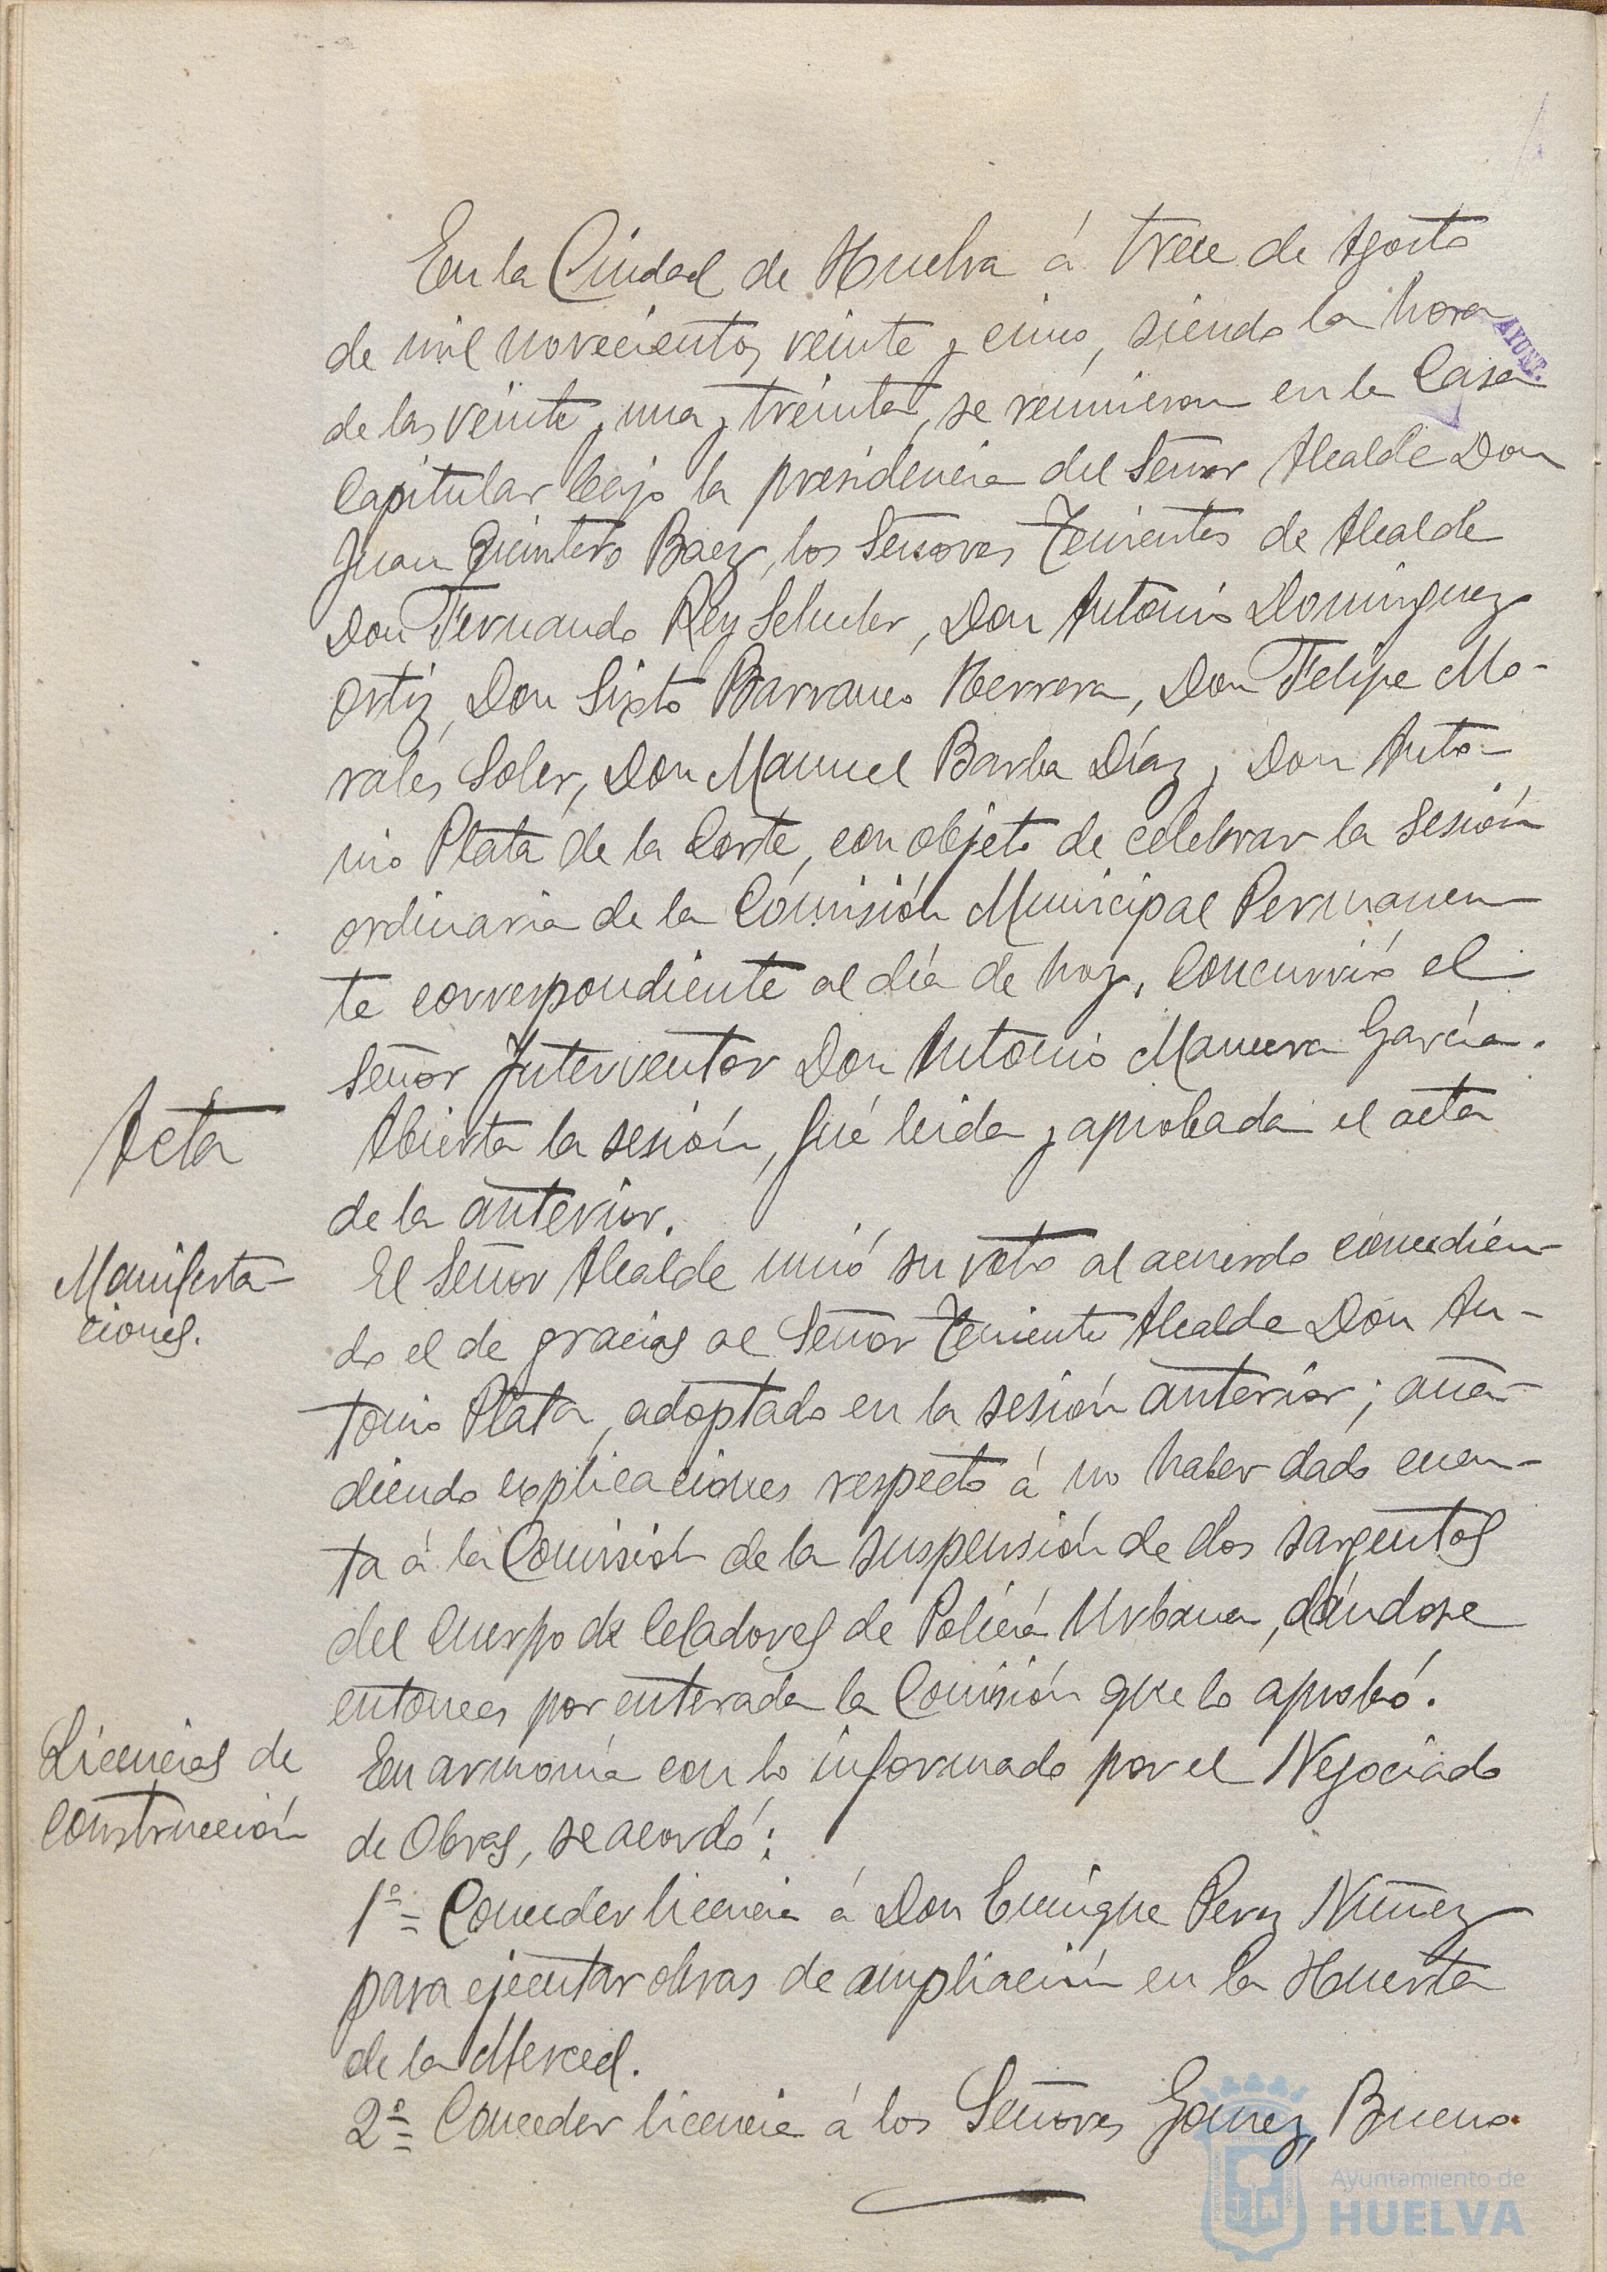 En la Ciudad de Huelva á trece de Agosto
de mil novecientos veinte y cinco, siendo la hora
AYUNT.
de las veinte y una y treinta, se reunieron en la Casa
Capitular bajo la presidencia del Señor Alcalde Don
Juan Quintero Baez, los Señores Tenientes de Alcalde
Don Fernando Rey Schuler, Don Antonio Dominguez
Ortiz, Don Sixto Barranco Herrera, Don Felipe Mo-
rales Soler, Don Manuel Barba Díaz y Don Anto-
nio Plata de la Corte, con objeto de celebrar la sesión
ordinaria de la Comisión Municipal Permanen-
te correspondiente al día de hoy. Concurrió el
Señor Interventor Don Antonio García.
Acta
Abierta la sesión, fué leida y aprobada el acta
de la anterior.
Manifesta-
ciones.
El Señor Alcalde unió su voto al acuerdo concedién-
do el de gracias al Señor Teniente Alcalde Don An-
tonio Plata, adoptado en la sesión anterior; aña-
diendo explicaciones respecto á no haber dado cuen-
ta á la Comisión de la suspensión de dos sargentos
del Cuerpo de Celadores de Policía Urbana, dándose
entonces por enterada la Comisión que lo aprobó.
Licencias de
construcción
En armonía con lo informado por el Negociado
de Obras, se acordó:
1º= Conceder licencia á Don Enrique Perez Núñez
para ejecutar obras de ampliación en la Huerta
de la Merced.
2º= Conceder licencia á los Señores Gomez, Bueno
Ayuntamiento de
HUELVA